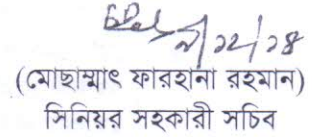 (মোছাম্মাৎ ফারহানা রহমান)
সিনিয়র সহকারী সচিব